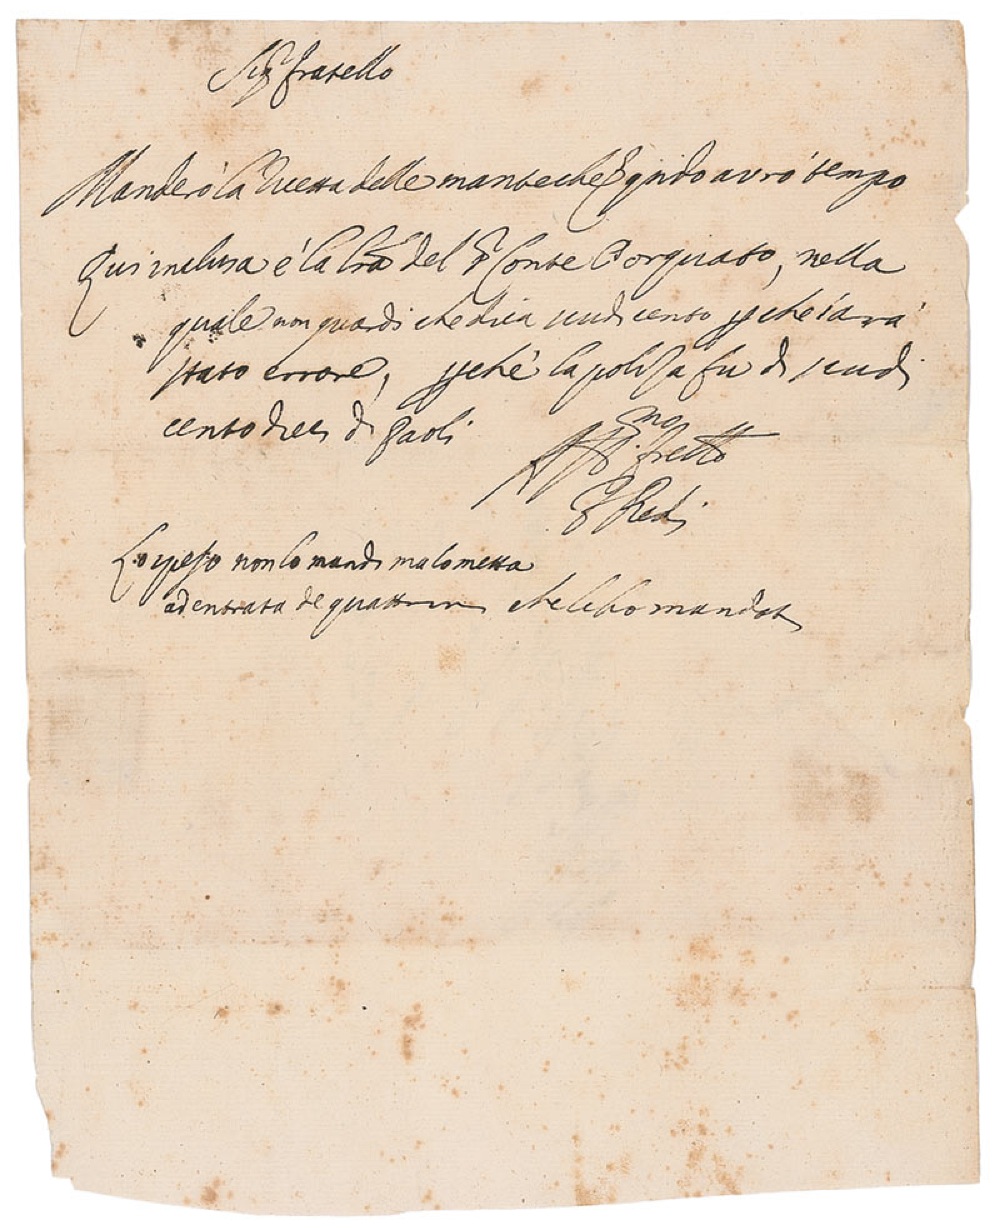 Sig. fratello
Manderò la ricetta delle manteche quando avrò tempo
Qui inclusa è la lra del Sr Conte Torquato, nella
quale non guardi che dica scudi cento perche sarà
stato errore, perché la poliza fu di scudi
cento dieci di Paoli
Affmo fratello
F Redi
Lo speso non lo mandi ma lo metta
ad entrata de quattrini che li ho mandati